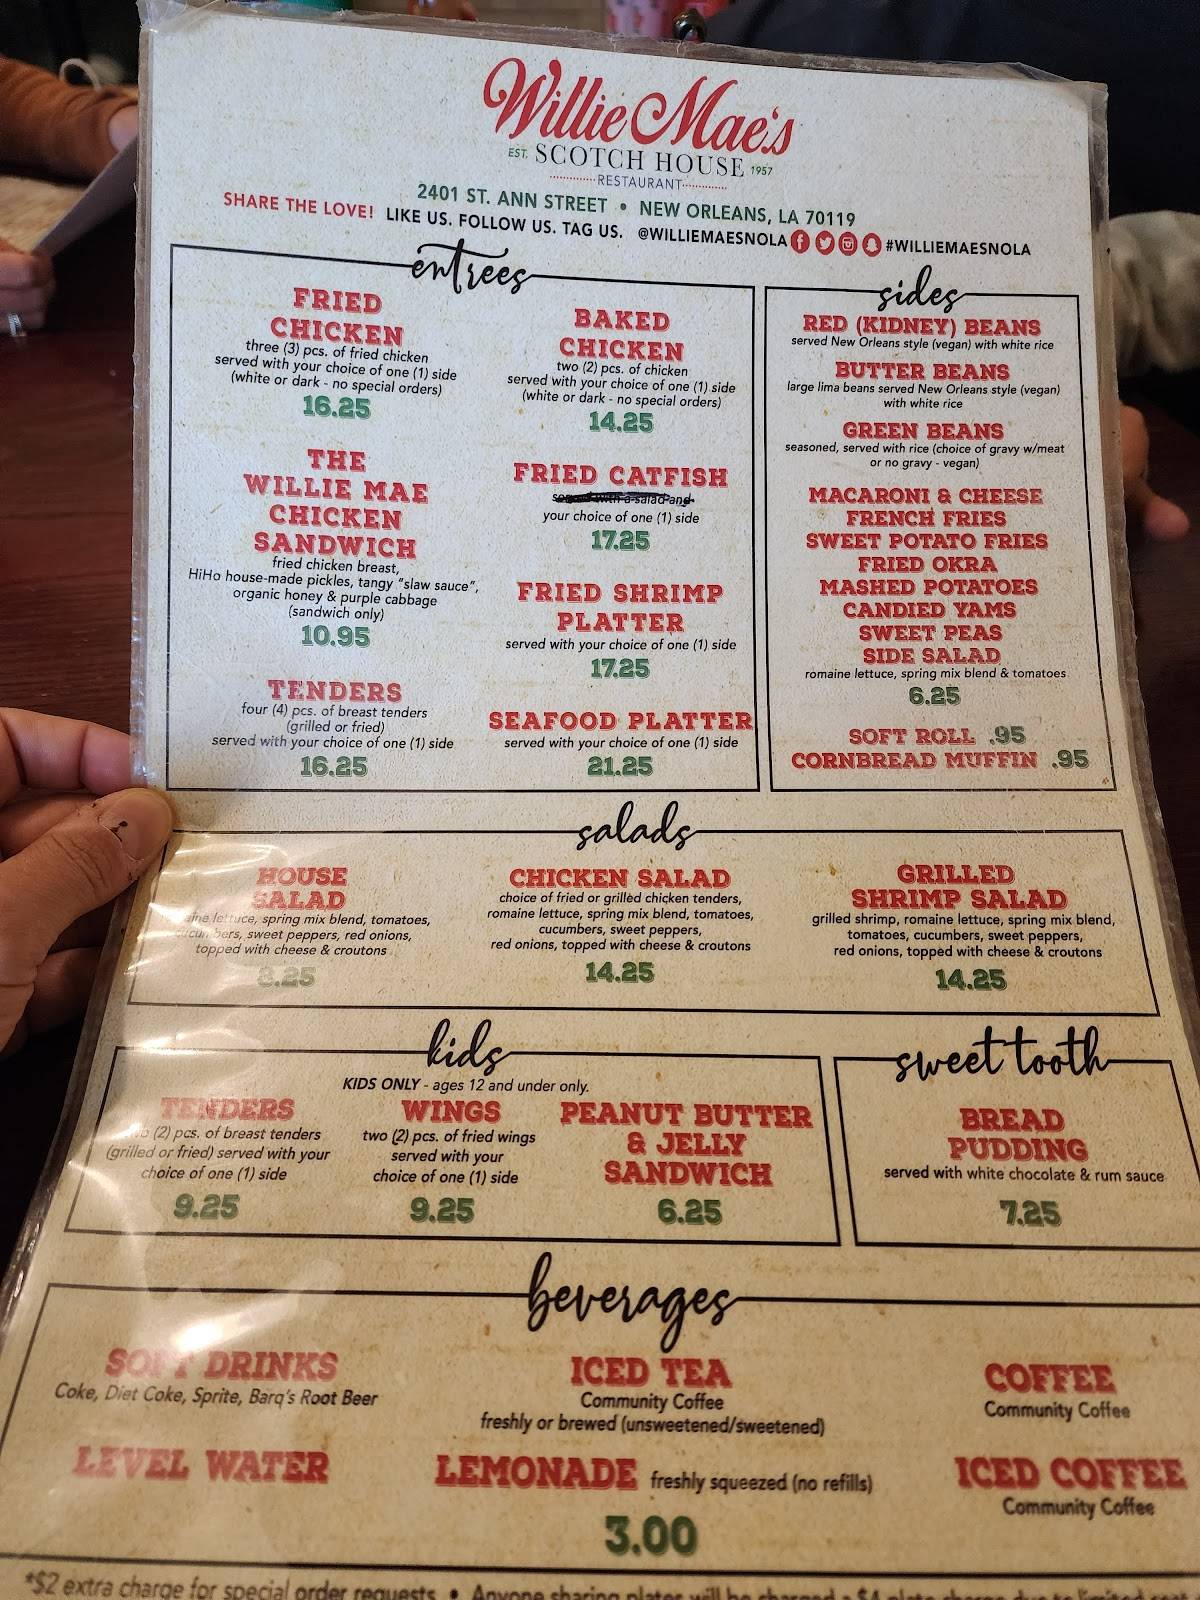 Willie Mae's
EST. SCOTCH HOUSE 1957
RESTAURANT
2401 ST. ANN STREET • NEW ORLEANS, LA 70119
SHARE THE LOVE! LIKE US. FOLLOW US. TAG US. @WILLIEMAESNOLA #WILLIEMAESNOLA
entrees
FRIED
CHICKEN
three (3) pcs. of fried chicken
served with your choice of one (1) side
(white or dark - no special orders)
16.25
THE
WILLIE MAE
CHICKEN
SANDWICH
fried chicken breast,
HiHo house-made pickles, tangy "slaw sauce",
organic honey & purple cabbage
(sandwich only)
10.95
TENDERS
four (4) pcs. of breast tenders
(grilled or fried)
served with your choice of one (1) side
16.25
BAKED
CHICKEN
two (2) pcs. of chicken
served with your choice of one (1) side
(white or dark - no special orders)
14.25
FRIED CATFISH
served with a salad and
your choice of one (1) side
17.25
FRIED SHRIMP
PLATTER
served with your choice of one (1) side
17.25
SEAFOOD PLATTER
served with your choice of one (1) side
21.25
sides
RED (KIDNEY) BEANS
served New Orleans style (vegan) with white rice
BUTTER BEANS
large lima beans served New Orleans style (vegan)
with white rice
GREEN BEANS
seasoned, served with rice (choice of gravy w/meat
or no gravy - vegan)
MACARONI & CHEESE
FRENCH FRIES
SWEET POTATO FRIES
FRIED OKRA
MASHED POTATOES
CANDIED YAMS
SWEET PEAS
SIDE SALAD
romaine lettuce, spring mix blend & tomatoes
6.25
SOFT ROLL .95
CORNBREAD MUFFIN .95
salads
HOUSE
SALAD
romaine lettuce, spring mix blend, tomatoes,
cucumbers, sweet peppers, red onions,
topped with cheese & croutons
8.25
CHICKEN SALAD
choice of fried or grilled chicken tenders,
romaine lettuce, spring mix blend, tomatoes,
cucumbers, sweet peppers,
red onions, topped with cheese & croutons
14.25
GRILLED
SHRIMP SALAD
grilled shrimp, romaine lettuce, spring mix blend,
tomatoes, cucumbers, sweet peppers,
red onions, topped with cheese & croutons
14.25
kids
KIDS ONLY - ages 12 and under only.
TENDERS
two (2) pcs. of breast tenders
(grilled or fried) served with your
choice of one (1) side
9.25
WINGS
two (2) pcs. of fried wings
served with your
choice of one (1) side
9.25
PEANUT BUTTER
& JELLY
SANDWICH
6.25
sweet tooth
BREAD
PUDDING
served with white chocolate & rum sauce
7.25
beverages
SOFT DRINKS
Coke, Diet Coke, Sprite, Barq's Root Beer
LEVEL WATER
ICED TEA
Community Coffee
freshly or brewed (unsweetened/sweetened)
LEMONADE freshly squeezed (no refills)
COFFEE
Community Coffee
ICED COFFEE
Community Coffee
3.00
*$2 extra charge for special order requests • Anyone sharing plates will be charged a $4 plate charge due to limited